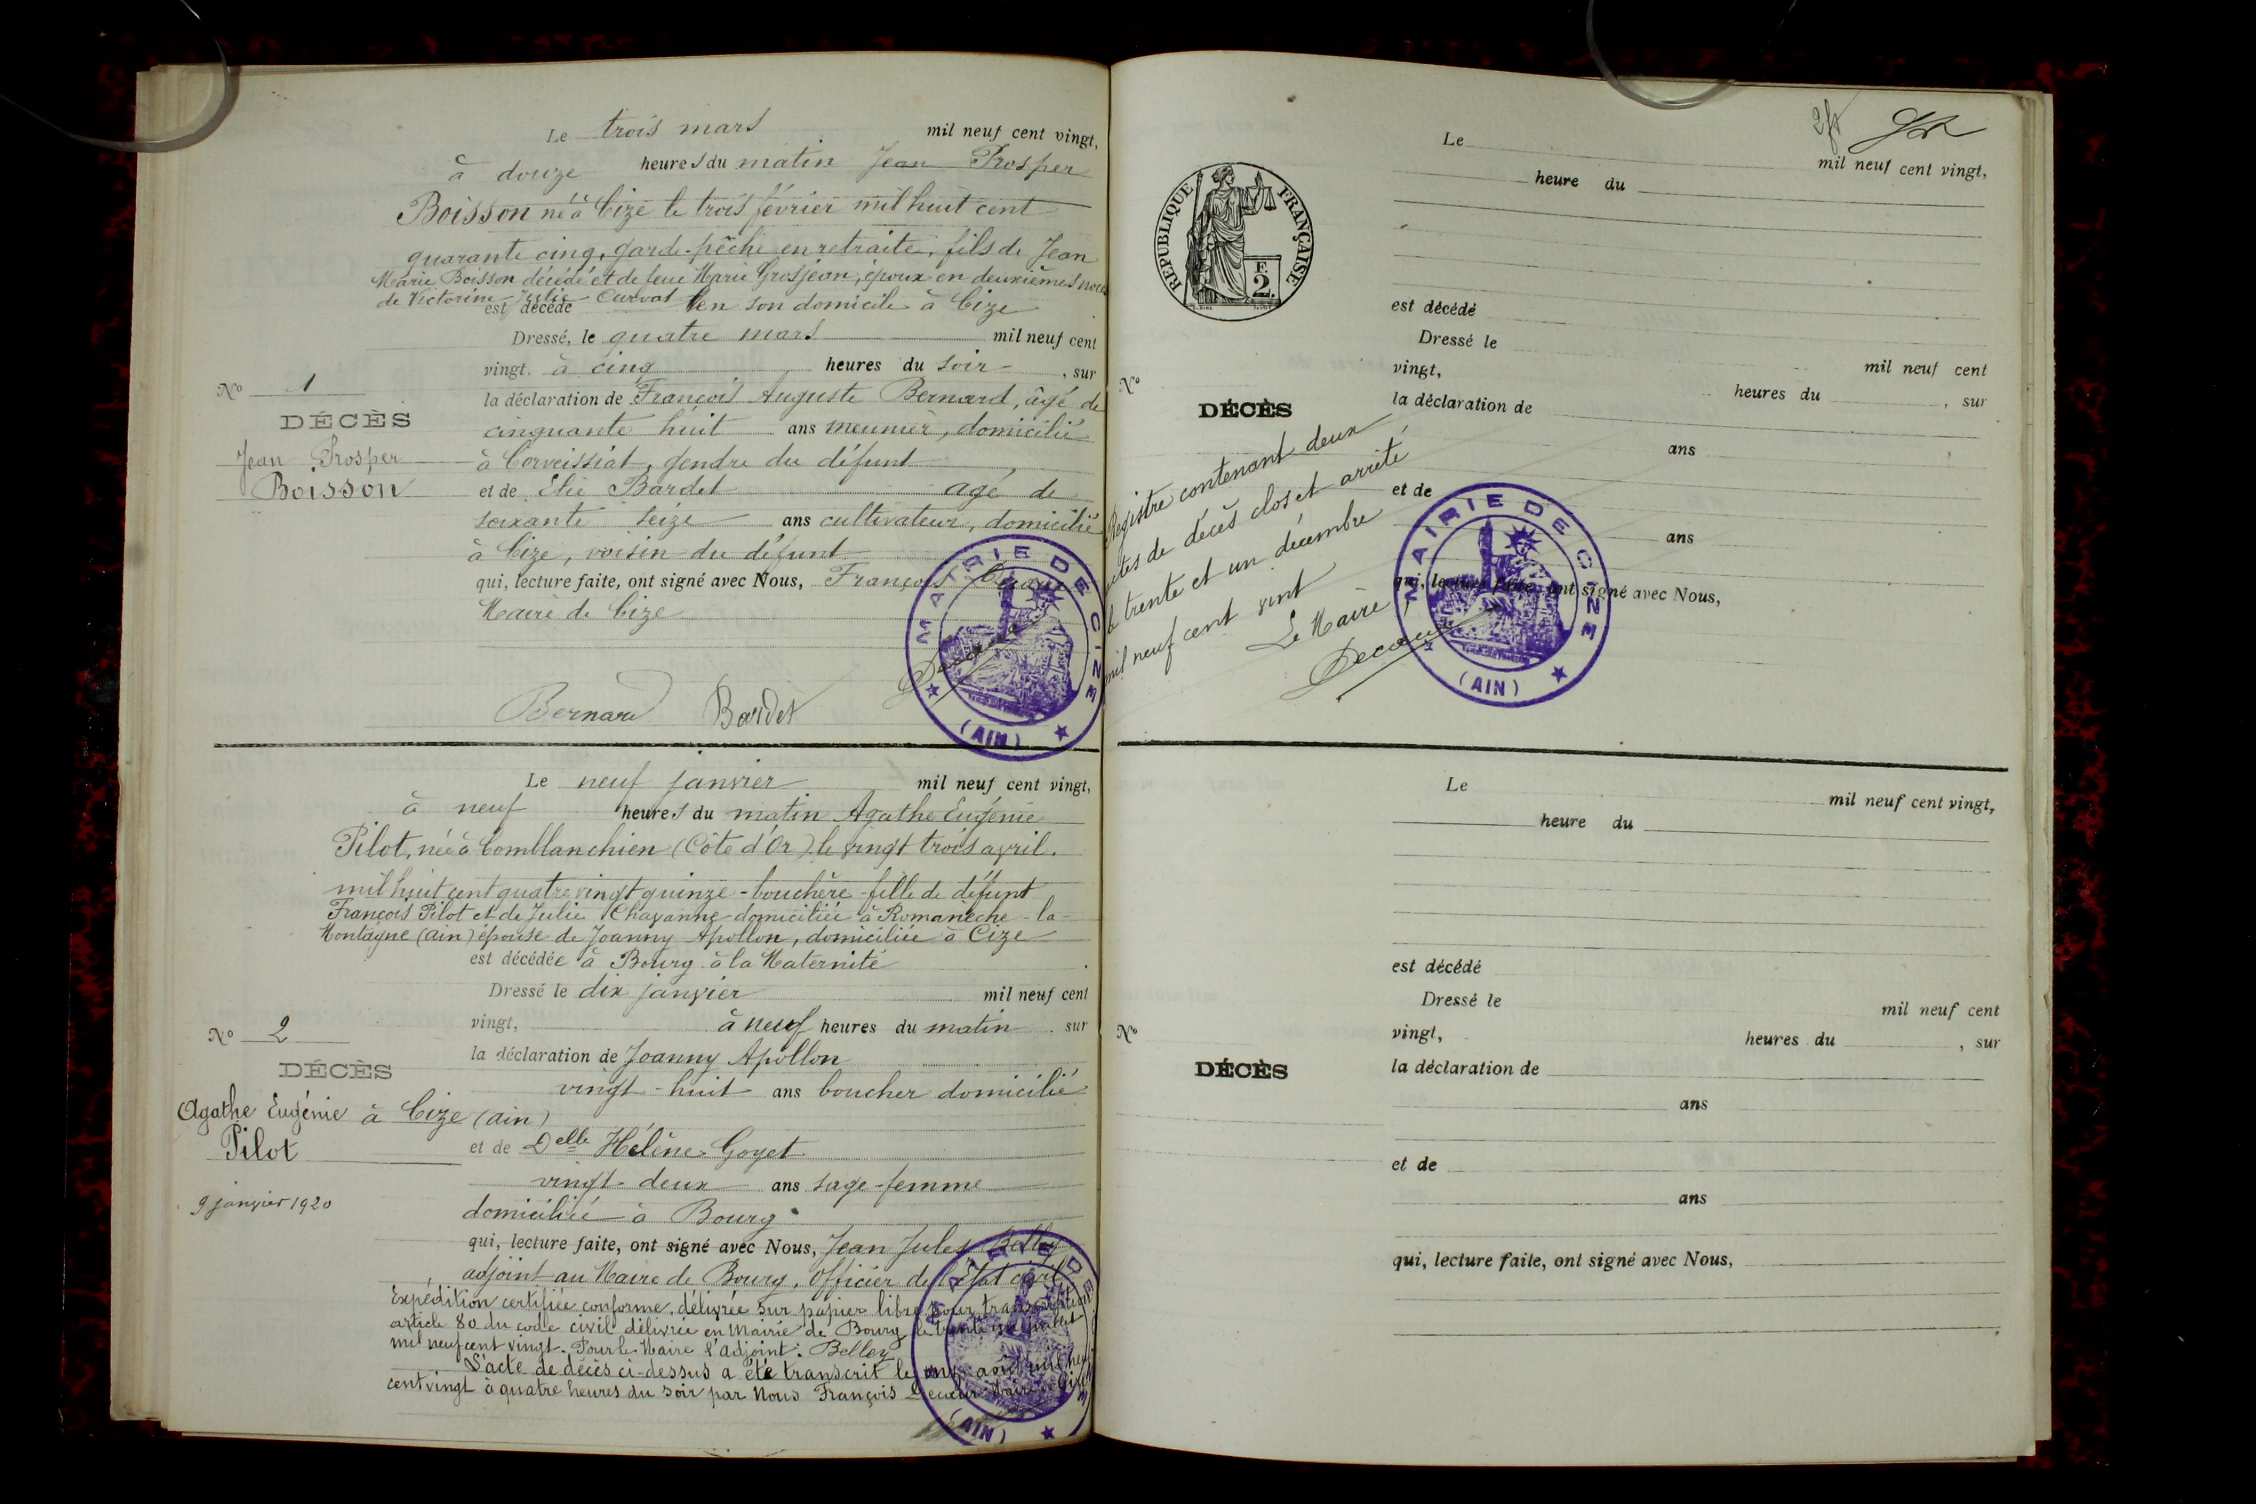 Le trois mars mil neuf cent vingt,
à douze heures du matin Jean Prosper
Boisson né à Cize le trois février mil huit cent
quarante cinq, garde-pêche en retraite, fils de Jean
Marie Boisson décédé et de feue Marie Grosjean, époux en deuxièmes noces
de Victorine Julie Curvat
est décédé en son domicile à Cize
Dressé, le quatre mars mil neuf cent
vingt. à cinq heures du soir, sur
No 1
la déclaration de François Auguste Bernard, âgé de
DÉCÈS
cinquante huit ans meunier, domicilié
Jean Prosper
à Corveissiat, gendre du défunt
Boisson
et de Elie Bardet agé de
soixante seize ans cultivateur, domicilié
à Cize, voisin du défunt
qui, lecture faite, ont signé avec Nous, François
Maire de Cize
Bernard Bardet
MAIRIE DE CIZE
(AIN)
Le neuf janvier mil neuf cent vingt,
à neuf heures du matin Agathe Eugénie
Pilot, née à Comblanchien (Côte d'Or) le vingt trois avril.
mil huit cent quatre vingt quinze - bouchère - fille de défunt
François Pilot et de Julie Chavanne domiciliée à Romanèche-la-
Montagne (ain) épouse de Joanny Apollon, domiciliée à Cize
est décédée à Bourg à la Maternité
Dressé le dix janvier mil neuf cent
vingt, à neuf heures du matin sur
No 2
la déclaration de Joanny Apollon
DÉCÈS
vingt-huit ans boucher domicilié
Agathe Eugénie
à Cize (ain)
Pilot
et de Delle Hélène Goyet
vingt-deux ans sage-femme
9 janvier 1920
domiciliée à Bourg
qui, lecture faite, ont signé avec Nous, Jean Jules Belley
adjoint au Maire de Bourg, officier de l'État civil
Expédition certifiée conforme, délivrée sur papier libre pour transcription
article 80 du code civil délivrée en Mairie de Bourg le trente
mil neuf cent vingt. Pour le Maire l'adjoint: Belley
L'acte de décès ci-dessus a été transcrit le onze août mil neuf
cent vingt à quatre heures du soir par Nous François Decoeur Maire de Cize
MAIRIE DE
(AIN)
2fr
RÉPUBLIQUE FRANÇAISE
F. 2.
Le mil neuf cent vingt,
heure du
est décédé
Dressé le mil neuf cent
vingt, heures du , sur
No
DÉCÈS
la déclaration de
ans
et de
ans
qui, lecture faite, ont signé avec Nous,
Registre contenant deux
actes de décès clos et arrêté
le trente et un décembre
mil neuf cent vint
Le Maire
Decoeur
MAIRIE DE CIZE
(AIN)
Le mil neuf cent vingt,
heure du
est décédé
Dressé le mil neuf cent
No
vingt, heures du , sur
DÉCÈS
la déclaration de
ans
et de
ans
qui, lecture faite, ont signé avec Nous,